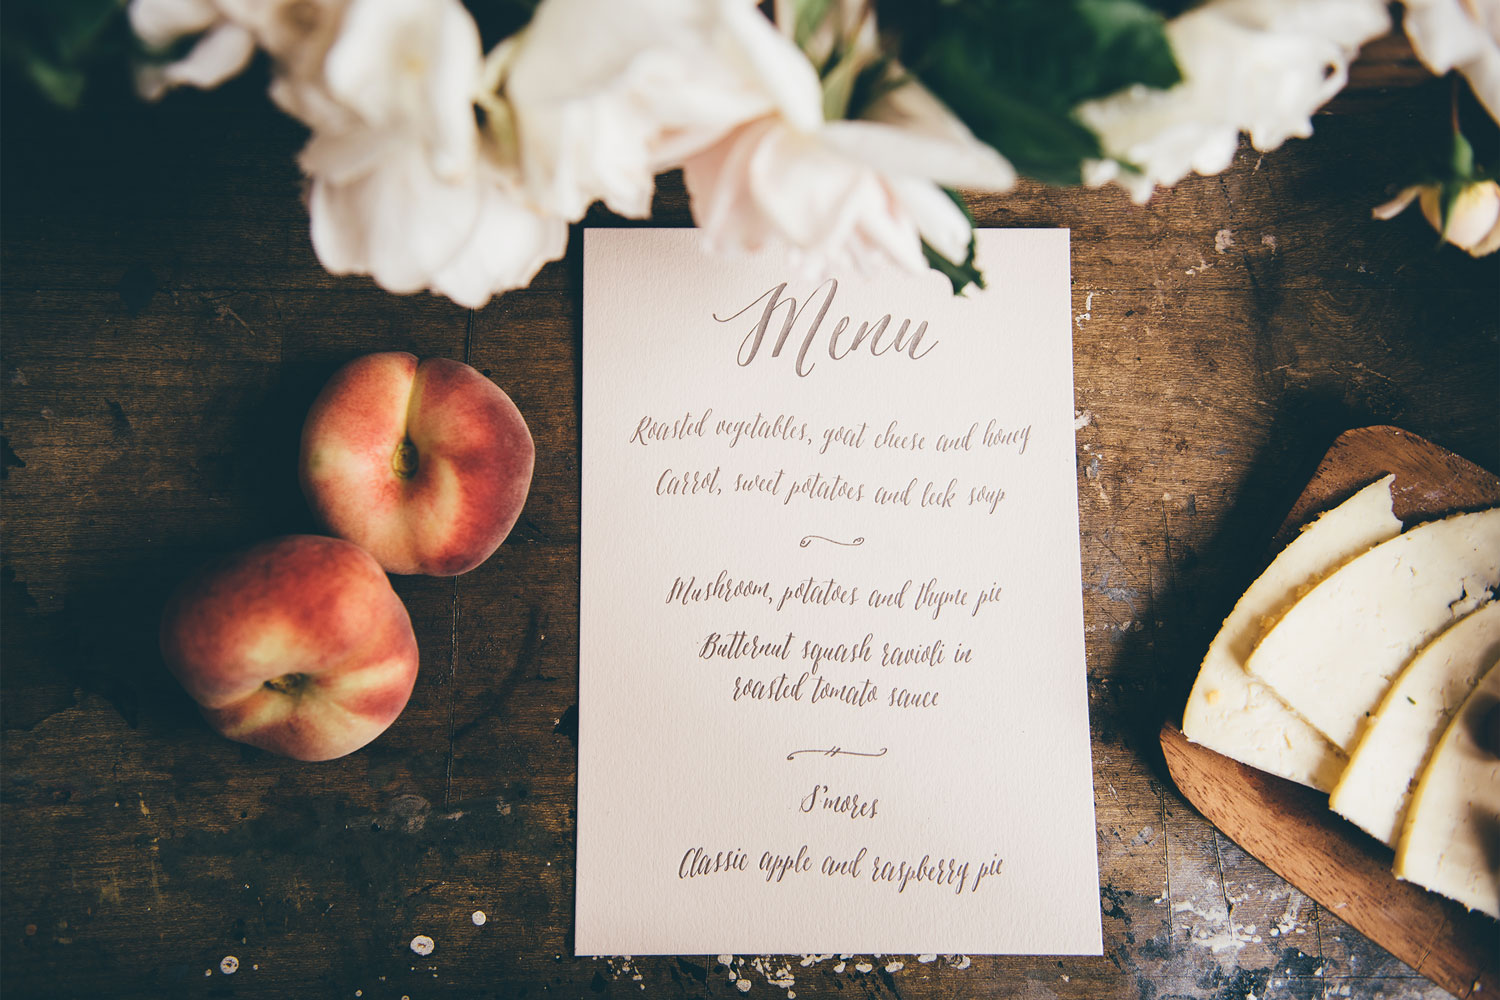 Menu
Roasted vegetables, goat cheese and honey
Carrot, sweet potatoes and leek soup
Mushroom, potatoes and thyme pie
Butternut squash ravioli in
roasted tomato sauce
S'mores
Classic apple and raspberry pie